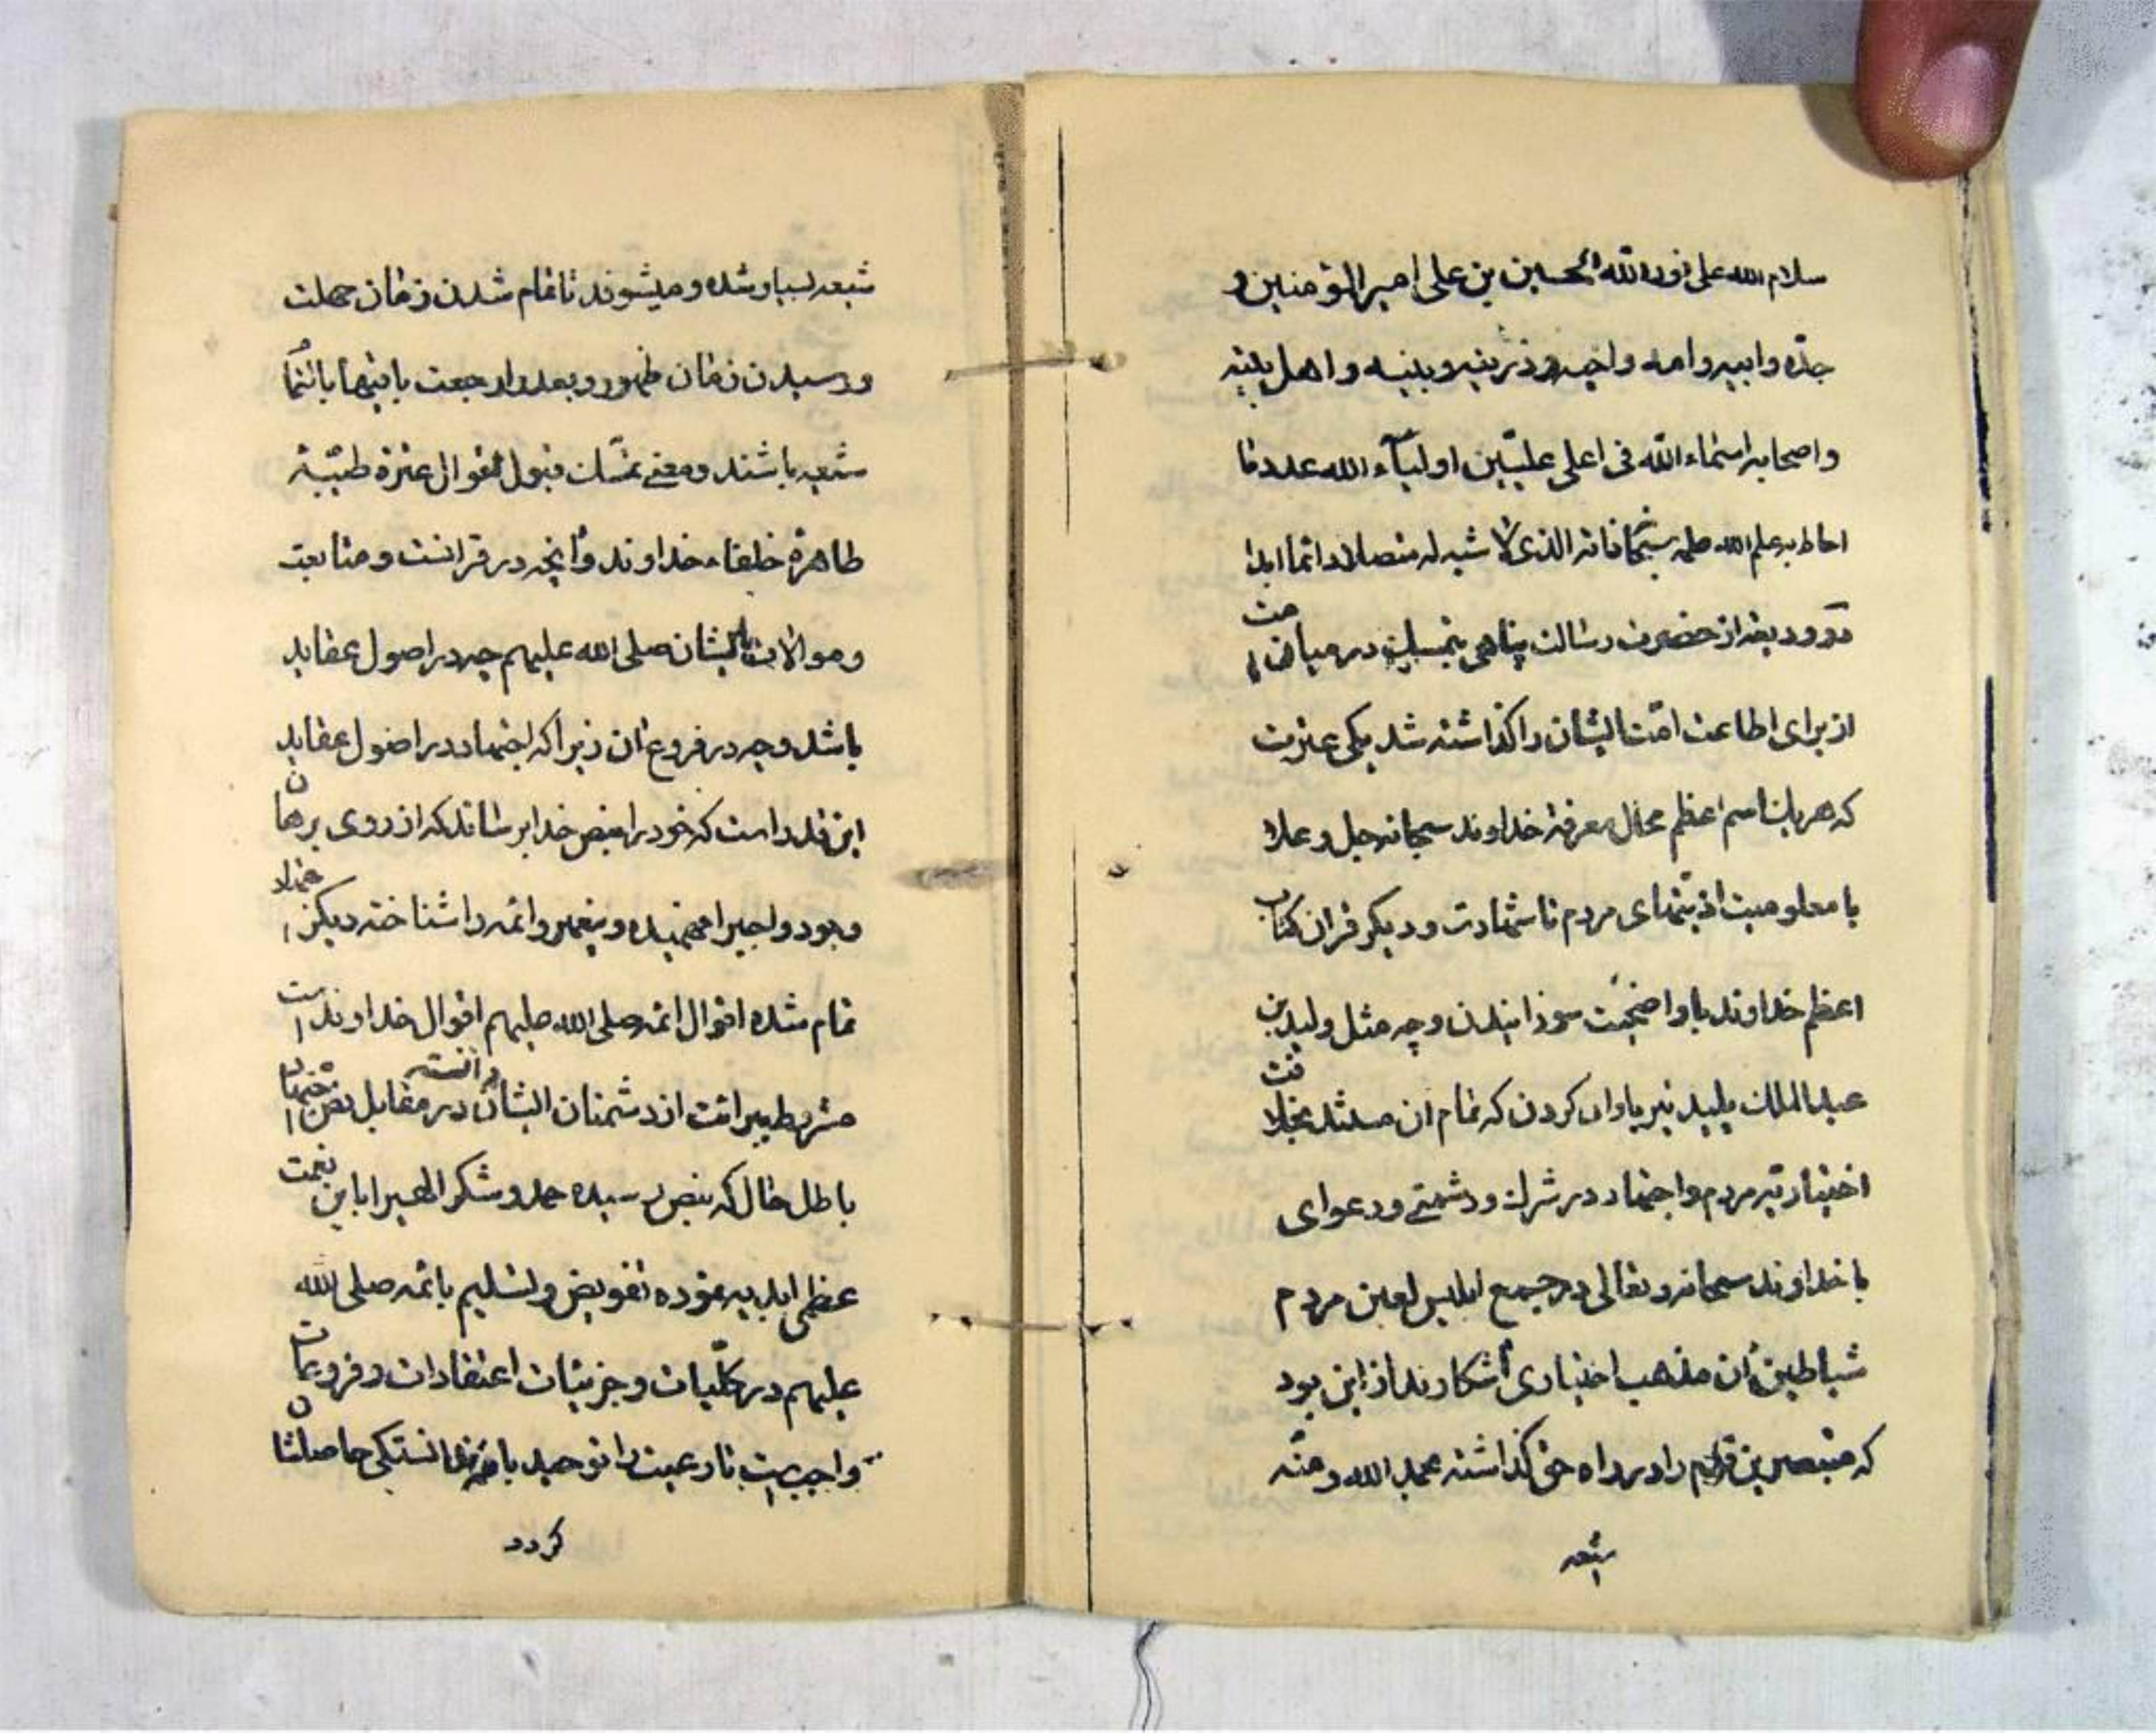 سلام الله على نور الله الحسین بن علی امیر المؤمنین و
جدّه وابیه وامه واخیه وذریته وبنیه واهل بیته
واصحابه اسماء الله فی اعلی علیّین اولیآء الله عدد ما
احاط به علم الله علمه سبحانه الذی لا شبه له متصلا دائما ابدا
دو ودیعه از حضرت رسالت پناهی در میان امت
از برای اطاعت امّت ایشان را گذاشته شد یکی عترت
که هریک اسم اعظم محال معرفة خداوند سبحانه جل وعلا
با معلومیت اذیّتهای مردم تا شهادت و دیگر قران کتاب
اعظم خداوند با واضحیّت سوزانیدن وچه مثل ولید بن
عبد الملک پلید تیر باران کردن که تمام ان مخالفت
اختیار مردم واجتهاد در شرک ودشمنی ودعوای
با خداوند سبحانه وتعالی در جمیع ابلیس لعین مردم
شیاطین ان مذهب اختیاری آشکارند از این بود
که را در راه حق گذاشته بحمد الله ومنّه
شیعه
شیعه بسیار شده ومیشوند تا تمام شدن زمان مهلت
ورسیدن زمان ظهور وبعد از رجعت باقیها با ائمه
شیعه باشند ومعنی تمسّک قبول اقوال عترة طیّبة
طاهرة خلفاء خداوند وآنچه در قرانست ومتابعت
وموالات ایشان صلی الله علیهم چه در اصول عقاید
باشد وچه در فروع ان زیرا که اجتهاد در اصول عقاید
این قدر است که خود را بنص خدا برساند که از روی برهان
وجود واجبرا فهمیده وپیغمبر وائمه را شناخته دیگر اجتهاد
تمام شده اقوال ائمه صلی الله علیهم اقوال خداوند است
از دشمنان ایشان دانسته در مقابل نص اجتهاد
باطل حال که بنص رسیده حمد وشکر الهیرا باین نعمت
عظمی ابدیه نموده تفویض وتسلیم بائمه صلی الله
علیهم در کلّیات وجزئیات اعتقادات وفروعات
واجبست تا رعیت را توحید با حاصلشان
گردد